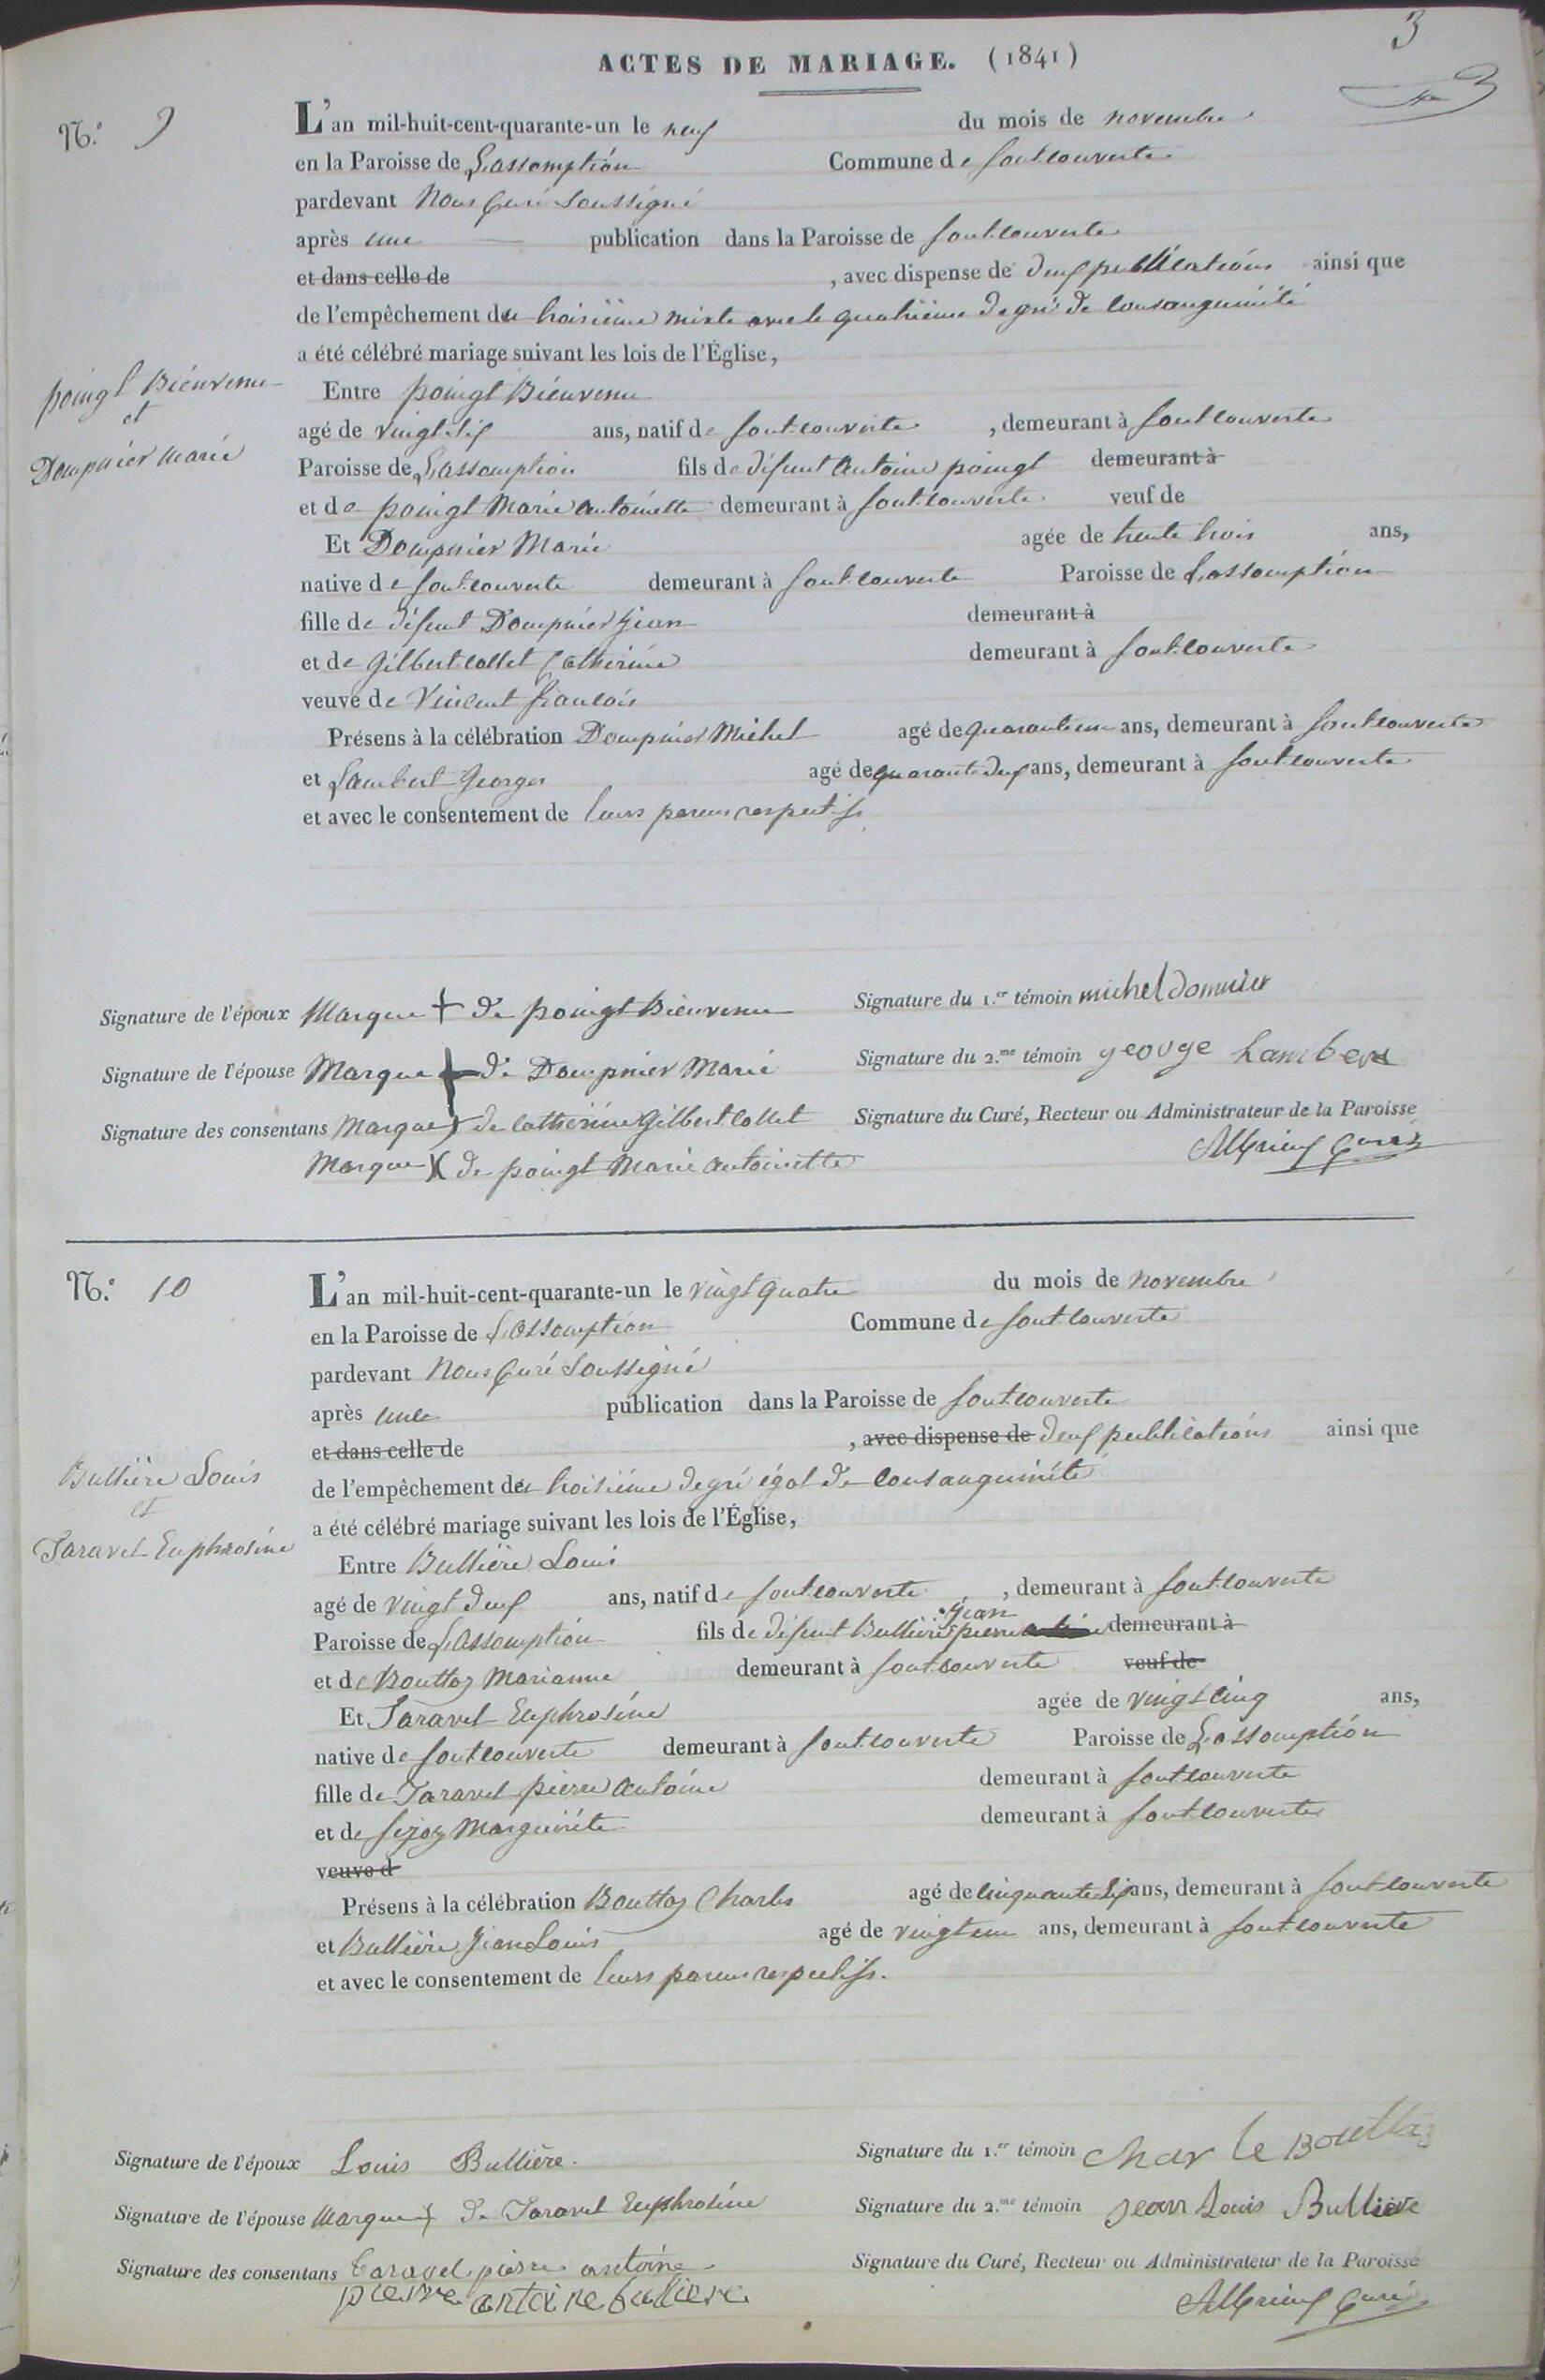 3
ACTES DE MARIAGE. (1841)
3
N.º 9
L'an mil-huit-cent-quarante-un le neuf du mois de novembre
en la Paroisse de L'assomption Commune de fontcouverte
pardevant Nous Curé Soussigné
après une publication dans la Paroisse de fontcouverte
et dans celle de , avec dispense de deux publications ainsi que
de l'empêchement du troisième mixte avec le quatrième degré de consanguinité
a été célébré mariage suivant les lois de l'Église,
poingt Bienvenu
et
Dompnier marie
Entre poingt Bienvenu
agé de vingt six ans, natif de fontcouverte , demeurant à fontcouverte
Paroisse de L'assomption fils de défunt Antoine poingt demeurant à
et de poingt Marie antoinette demeurant à fontcouverte veuf de
Et Dompnier Marie agée de trente trois ans,
native de fontcouverte demeurant à fontcouverte Paroisse de L'assomption
fille de défunt Dompnier Jean demeurant à
et de Gilbert collet Catherine demeurant à fontcouverte
veuve de Vincent françois
Présens à la célébration Dompnier Michel agé de quarante un ans, demeurant à fontcouverte
et Lambert Georges agé de quarante deux ans, demeurant à fontcouverte
et avec le consentement de leurs parens respectifs
Signature de l'époux Marque + de poingt Bienvenu
Signature du 1.er témoin michel domnier
Signature de l'épouse Marque + de Dompnier Marie
Signature du 2.me témoin george Lambert
Signature des consentans Marque + de Catherine Gilbert collet
Signature du Curé, Recteur ou Administrateur de la Paroisse
Marque X de poingt Marie antoinette
Curé
N.º 10
L'an mil-huit-cent-quarante-un le vingt quatre du mois de novembre
en la Paroisse de L'assomption Commune de fontcouverte
pardevant Nous Curé Soussigné
après une publication dans la Paroisse de fontcouverte
et dans celle de , avec dispense de deux publications ainsi que
de l'empêchement du troisième degré égal de consanguinité
a été célébré mariage suivant les lois de l'Église,
Bullière Louis
et
Taravel Euphrosine
Entre Bullière Louis
agé de vingt deux ans, natif de fontcouverte , demeurant à fontcouverte
Paroisse de L'assomption fils de défunt Bullière Jean pierre demeurant à
et de Bouttaz Marianne demeurant à fontcouverte veuf de
Et Taravel Euphrosine agée de vingt cinq ans,
native de fontcouverte demeurant à fontcouverte Paroisse de L'assomption
fille de Taravel pierre antoine demeurant à fontcouverte
et de Marguerite demeurant à fontcouverte
veuve d
Présens à la célébration Bouttaz Charles agé de cinquante six ans, demeurant à fontcouverte
et Bullière Jean Louis agé de vingt un ans, demeurant à fontcouverte
et avec le consentement de leurs parens respectifs.
Signature de l'époux Louis Bullière.
Signature du 1.er témoin Charle Bouttaz
Signature de l'épouse Marque + de Taravel Euphrosine
Signature du 2.me témoin Jean Louis Bulliere
Signature des consentans taravel pierre antoine
Signature du Curé, Recteur ou Administrateur de la Paroisse
pierre antoine buliere
Curé